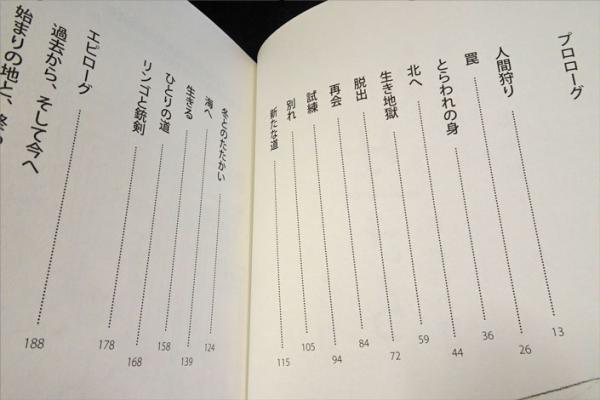 プロローグ
人間狩り 13
罠 26
とらわれの身 36
北へ 44
生き地獄 59
脱出 72
再会 84
試練 94
別れ 105
新たな道 115
冬とのたたかい 124
海へ 139
生きる 158
ひとりの道 168
リンゴと銃剣 178
エピローグ 188
過去から、そして今へ
始まりの地と、